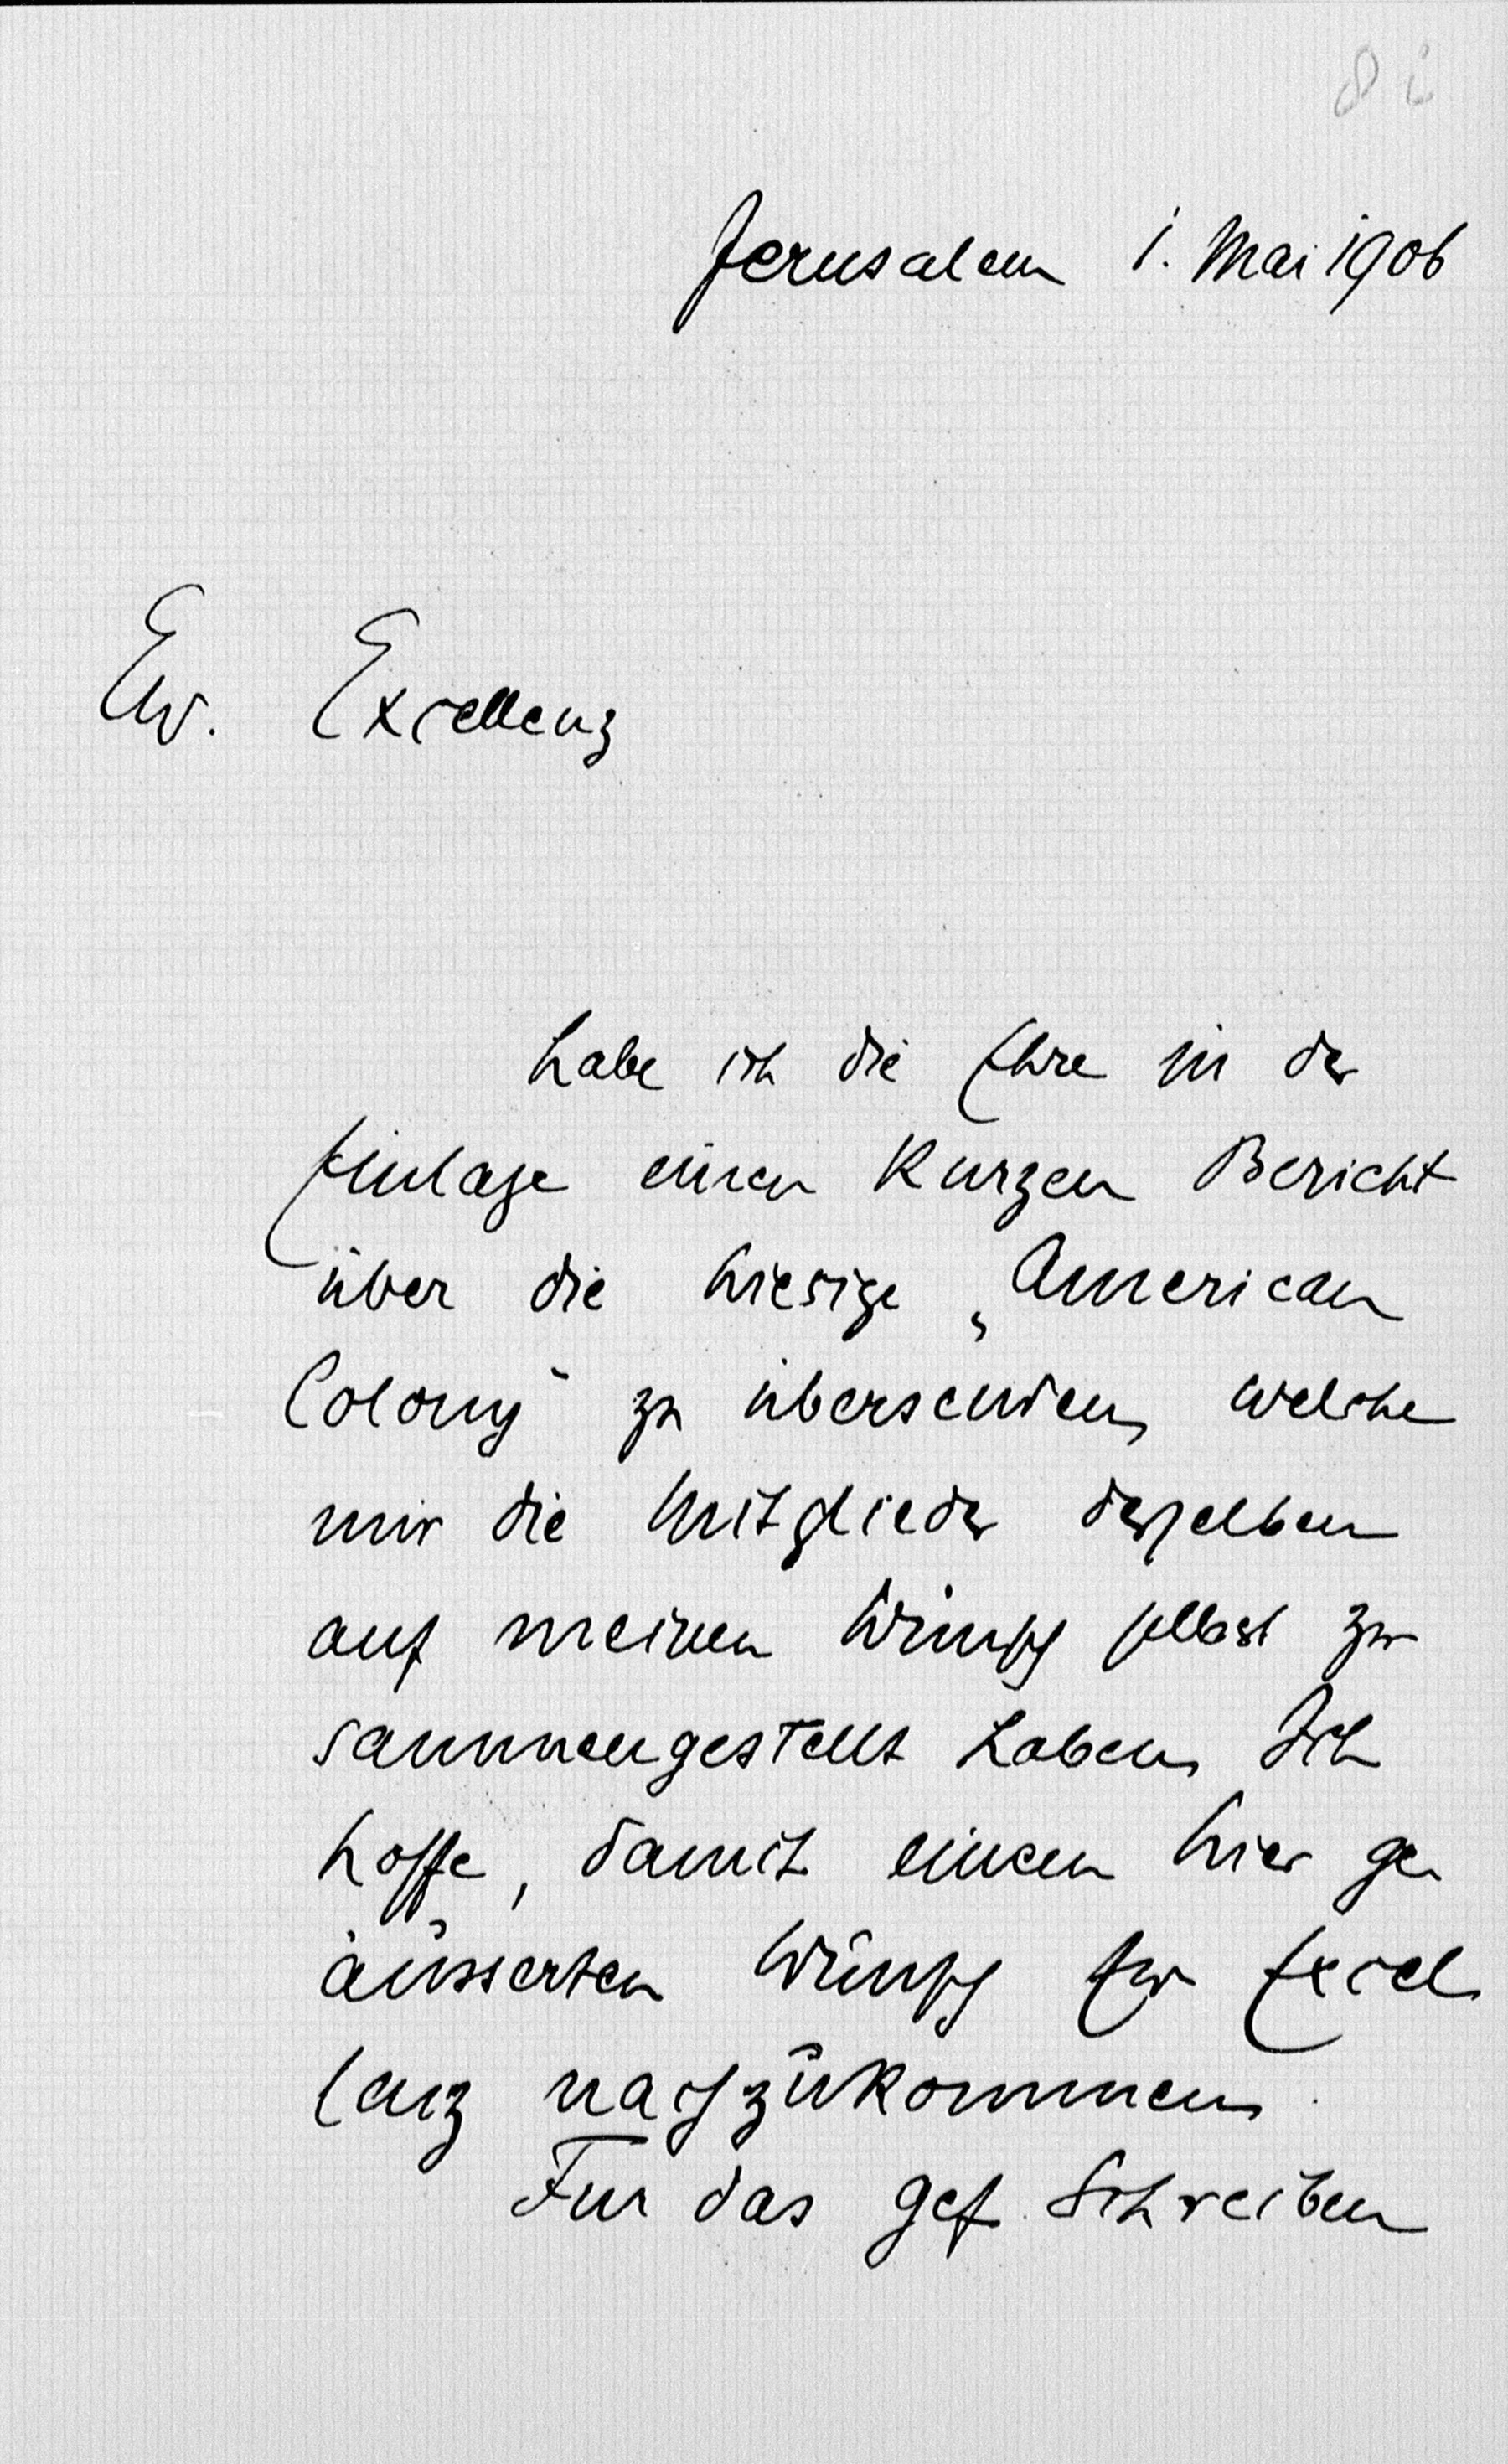 Jerusalem 1. Mai 1906
Ew. Excellenz
habe ich die Ehre in der
Einlage einen kurzen Bericht
über die hiesige „American
Colony“ zu übersenden, welche
mir die Mitglieder derselben
auf meinen Wunsch selbst zu
sammengestellt haben. Ich
hoffe, damit einen hier ge
äusserten Wunsch Ew Excel
lenz nachzukommen.
Für das gef. Schreiben